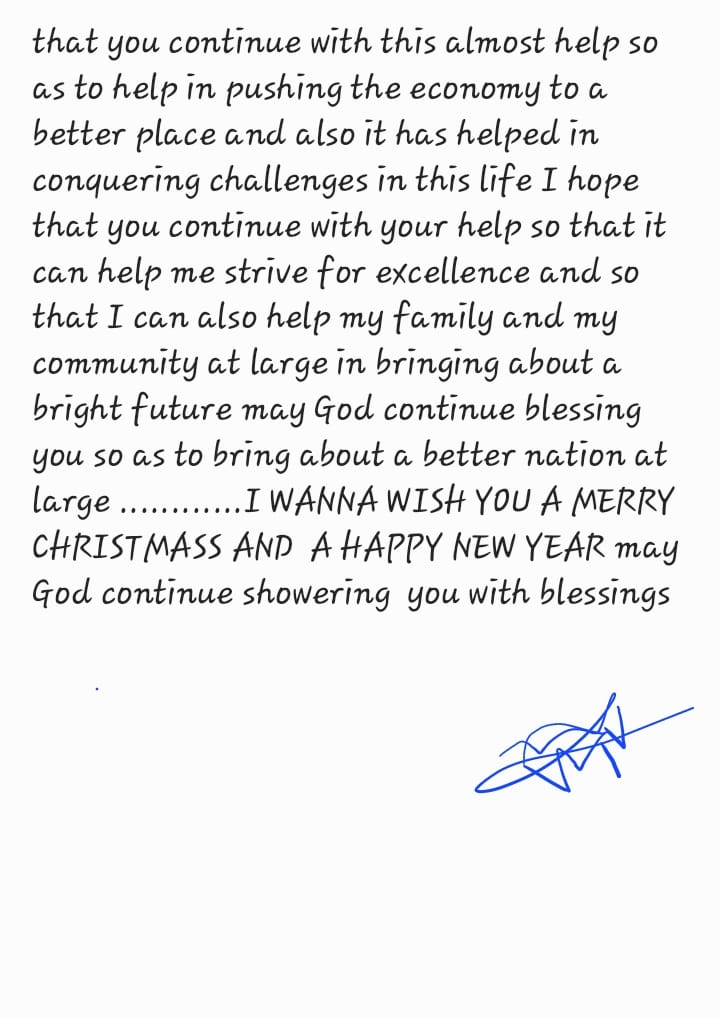 that you continue with this almost help so
as to help in pushing the economy to a
better place and also it has helped in
conquering challenges in this life I hope
that you continue with your help so that it
can help me strive for excellence and so
that I can also help my family and my
community at large in bringing about a
bright future may God continue blessing
you so as to bring about a better nation at
large ............I WANNA WISH YOU A MERRY
CHRISTMASS AND  A HAPPY NEW YEAR may
God continue showering  you with blessings